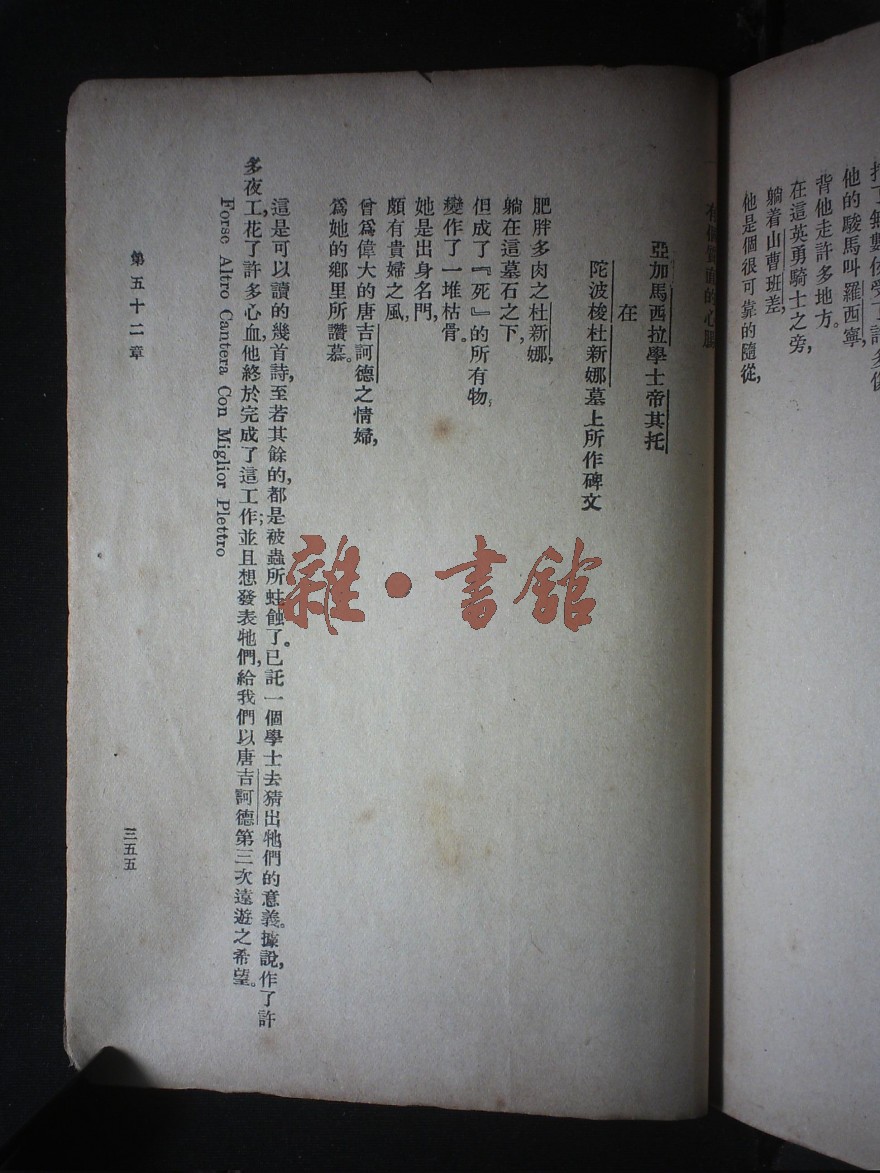 他的駿馬叫羅西寧,
背他走許多地方。
在這英勇騎士之旁,
躺着山曹班差,
他是個很可靠的隨從,
亞加馬西拉學士帝其托
在
陀波梭杜新娜墓上所作碑文
肥胖多肉之杜新娜,
躺在這墓石之下,
但成了『死』的所有物,
變作了一堆枯骨。
她是出身名門,
頗有貴婦之風,
曾爲偉大的唐吉訶德之情婦,
爲她的鄉里所讚慕。
這是可以讀的幾首詩,至若其餘的,都是被蟲所蛀蝕了。已託一個學士去猜出牠們的意義。據說,作了許
多夜工,花了許多心血,他終於完成了這工作;並且想發表牠們,給我們以唐吉訶德第三次遠遊之希望。
Forse Altro Cantera Con Miglior Plettro
第五十二章
三五五
雜·書館